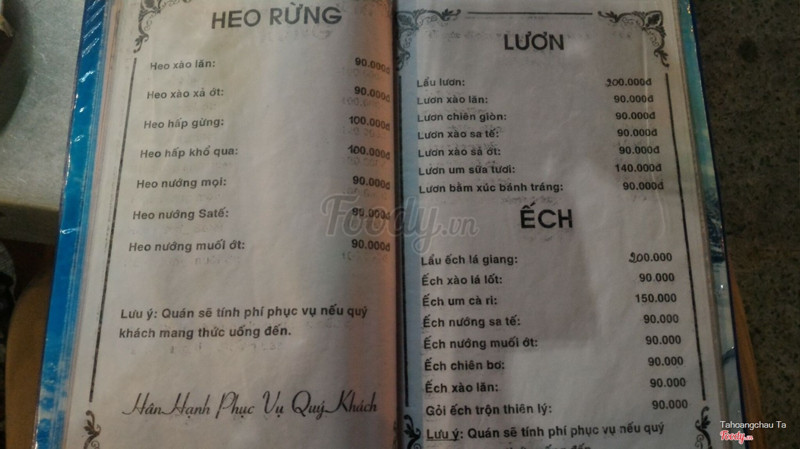 HEO RỪNG
Heo xào lăn: 90.000đ
Heo xào xả ớt: 90.000đ
Heo hấp gừng: 100.000đ
Heo hấp khổ qua: 100.000đ
Heo nướng mọi: 90.000đ
Heo nướng Satế: 90.000đ
Heo nướng muối ớt: 90.000đ
Lưu ý: Quán sẽ tính phí phục vụ nếu quý
khách mang thức uống đến.
Hân Hạnh Phục Vụ Quý Khách
LƯƠN
Lẩu lươn: 200.000đ
Lươn xào lăn: 90.000đ
Lươn chiên giòn: 90.000đ
Lươn xào sa tế: 90.000đ
Lươn xào sả ớt: 90.000đ
Lươn um sữa tươi: 140.000đ
Lươn bằm xúc bánh tráng: 90.000đ
ẾCH
Lẩu ếch lá giang: 200.000
Ếch xào lá lốt: 90.000
Ếch um cà ri: 150.000
Ếch nướng sa tế: 90.000
Ếch nướng muối ớt: 90.000
Ếch chiên bơ: 90.000
Ếch xào lăn: 90.000
Gỏi ếch trộn thiên lý: 90.000
Lưu ý: Quán sẽ tính phí phục vụ nếu quý
Foody.vn
Tahoangchau Ta
Foody.vn